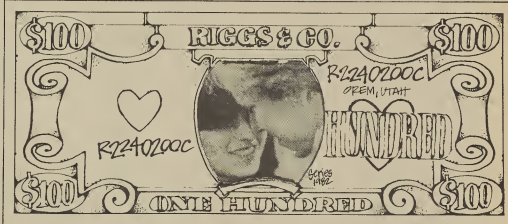 $100 RIGGS & CO. $100
R2240200C
OREM, UTAH
HUNDRED
R2240200C
Series
1982
$100 ONE HUNDRED $100